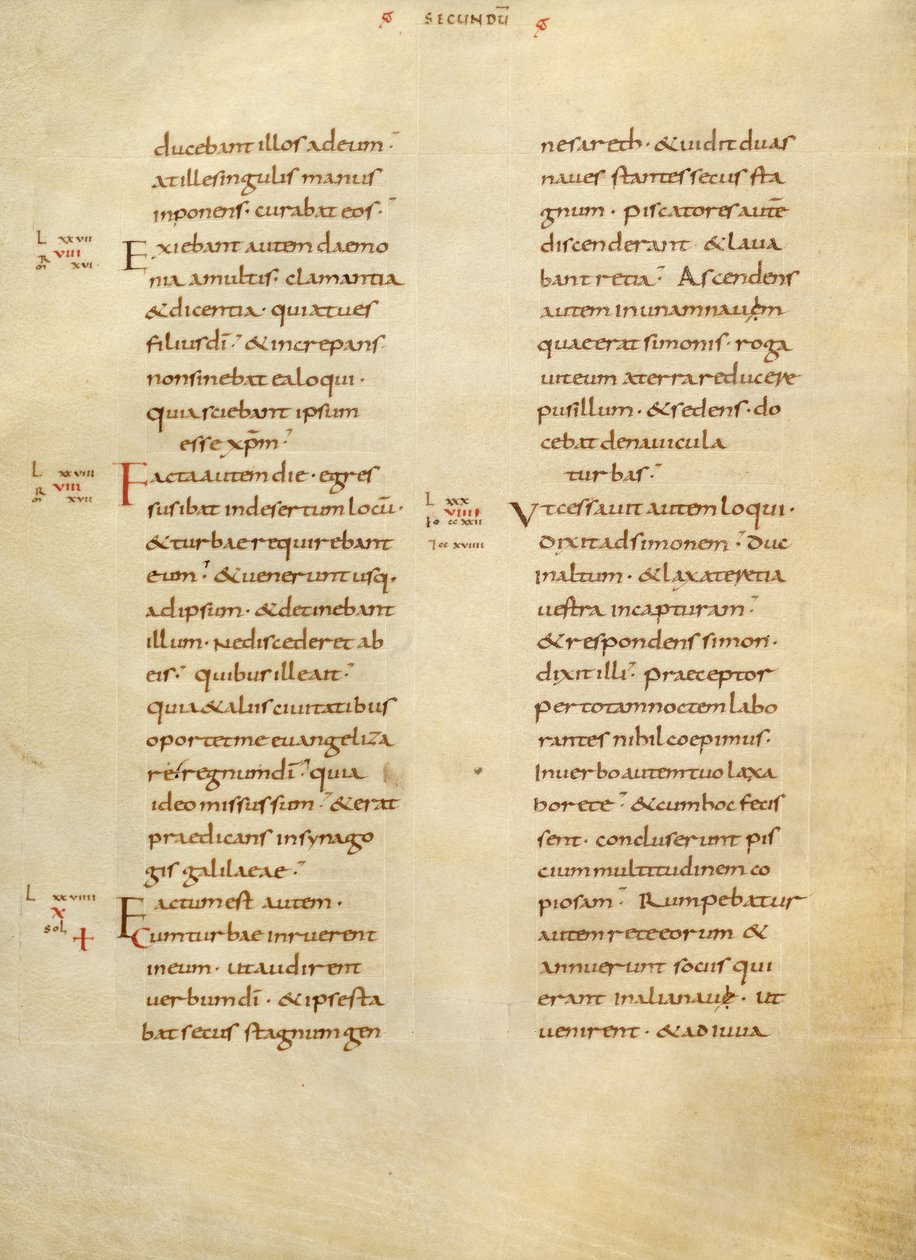 SECUNDŪ
ducebant illos ad eum·
at ille singulis manus
inponens· curabat eos·
L xxvii
viii
R xvi
Exiebant autem daemo
nia a multis· clamantia
& dicentia· quia tu es
filius dī· & increpans
non sinebat ea loqui·
quia sciebant ipsum
esse xp̄m·
L xxviii
viii
R xvii
Facta autem die· egres
sus ibat in desertum locū·
& turbae requirebant
eum· & venerunt usq·
ad ipsum· & detinebant
illum· Ne discederet ab
eis· quibus ille ait·
quia & aliis civitatibus
oportet me euangeliza
re regnum dī· quia
ideo missus sum· & erat
praedicans in synago
gis galilaeae·
L xxviiii
x
sol
Factum est autem·
Cum turbae inruerent
in eum· ut audirent
uerbum dī· & ipse sta
bat secus stagnum gen
nesareth· & uidit duas
naues stantes secus sta
gnum· piscatores autē
discenderant & laua
bant retia· Ascendens
autem in unam nauem
quae erat simonis· roga
uit eum a terra reducere
pusillum· & sedens· do
cebat de nauicula
turbas·
L xxx
viiii
Io ccxxii
ccxviiii
Vt cessauit autem loqui·
Dixit ad simonem· Duc
in altum· & laxate retia
uestra in capturam·
& respondens simon·
dixit illi· praeceptor
per totam noctem labo
rantes nihil coepimus·
In uerbo autem tuo laxa
bo rete· & cum hoc fecis
sent· concluserunt pis
cium multitudinem co
piosam· Rumpebatur
autem rete eorum &
annuerunt sociis qui
erant in alia naui· ut
uenirent· & adiuua